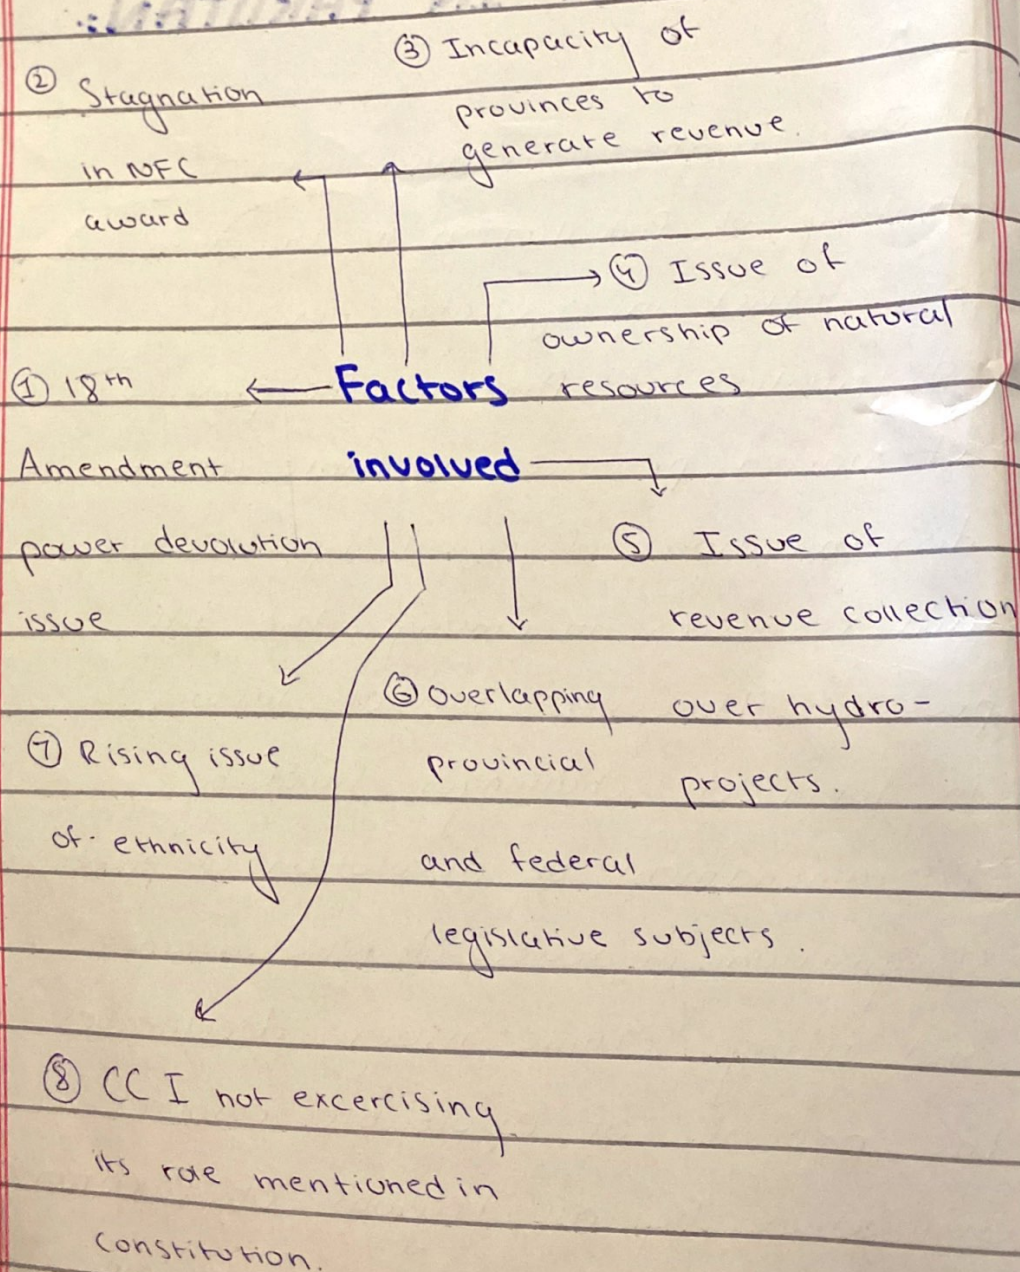 ② Stagnation
in NFC
award
③ Incapacity of
provinces to
generate revenue.
④ Issue of
ownership of natural
resources
Factors
involved
① 18th
Amendment
power devolution
issue
⑤ Issue of
revenue collection
over hydro-
projects.
⑥ Overlapping
provincial
and federal
legislative subjects.
⑦ Rising issue
of ethnicity
⑧ CCI not excercising
its role mentioned in
Constitution.